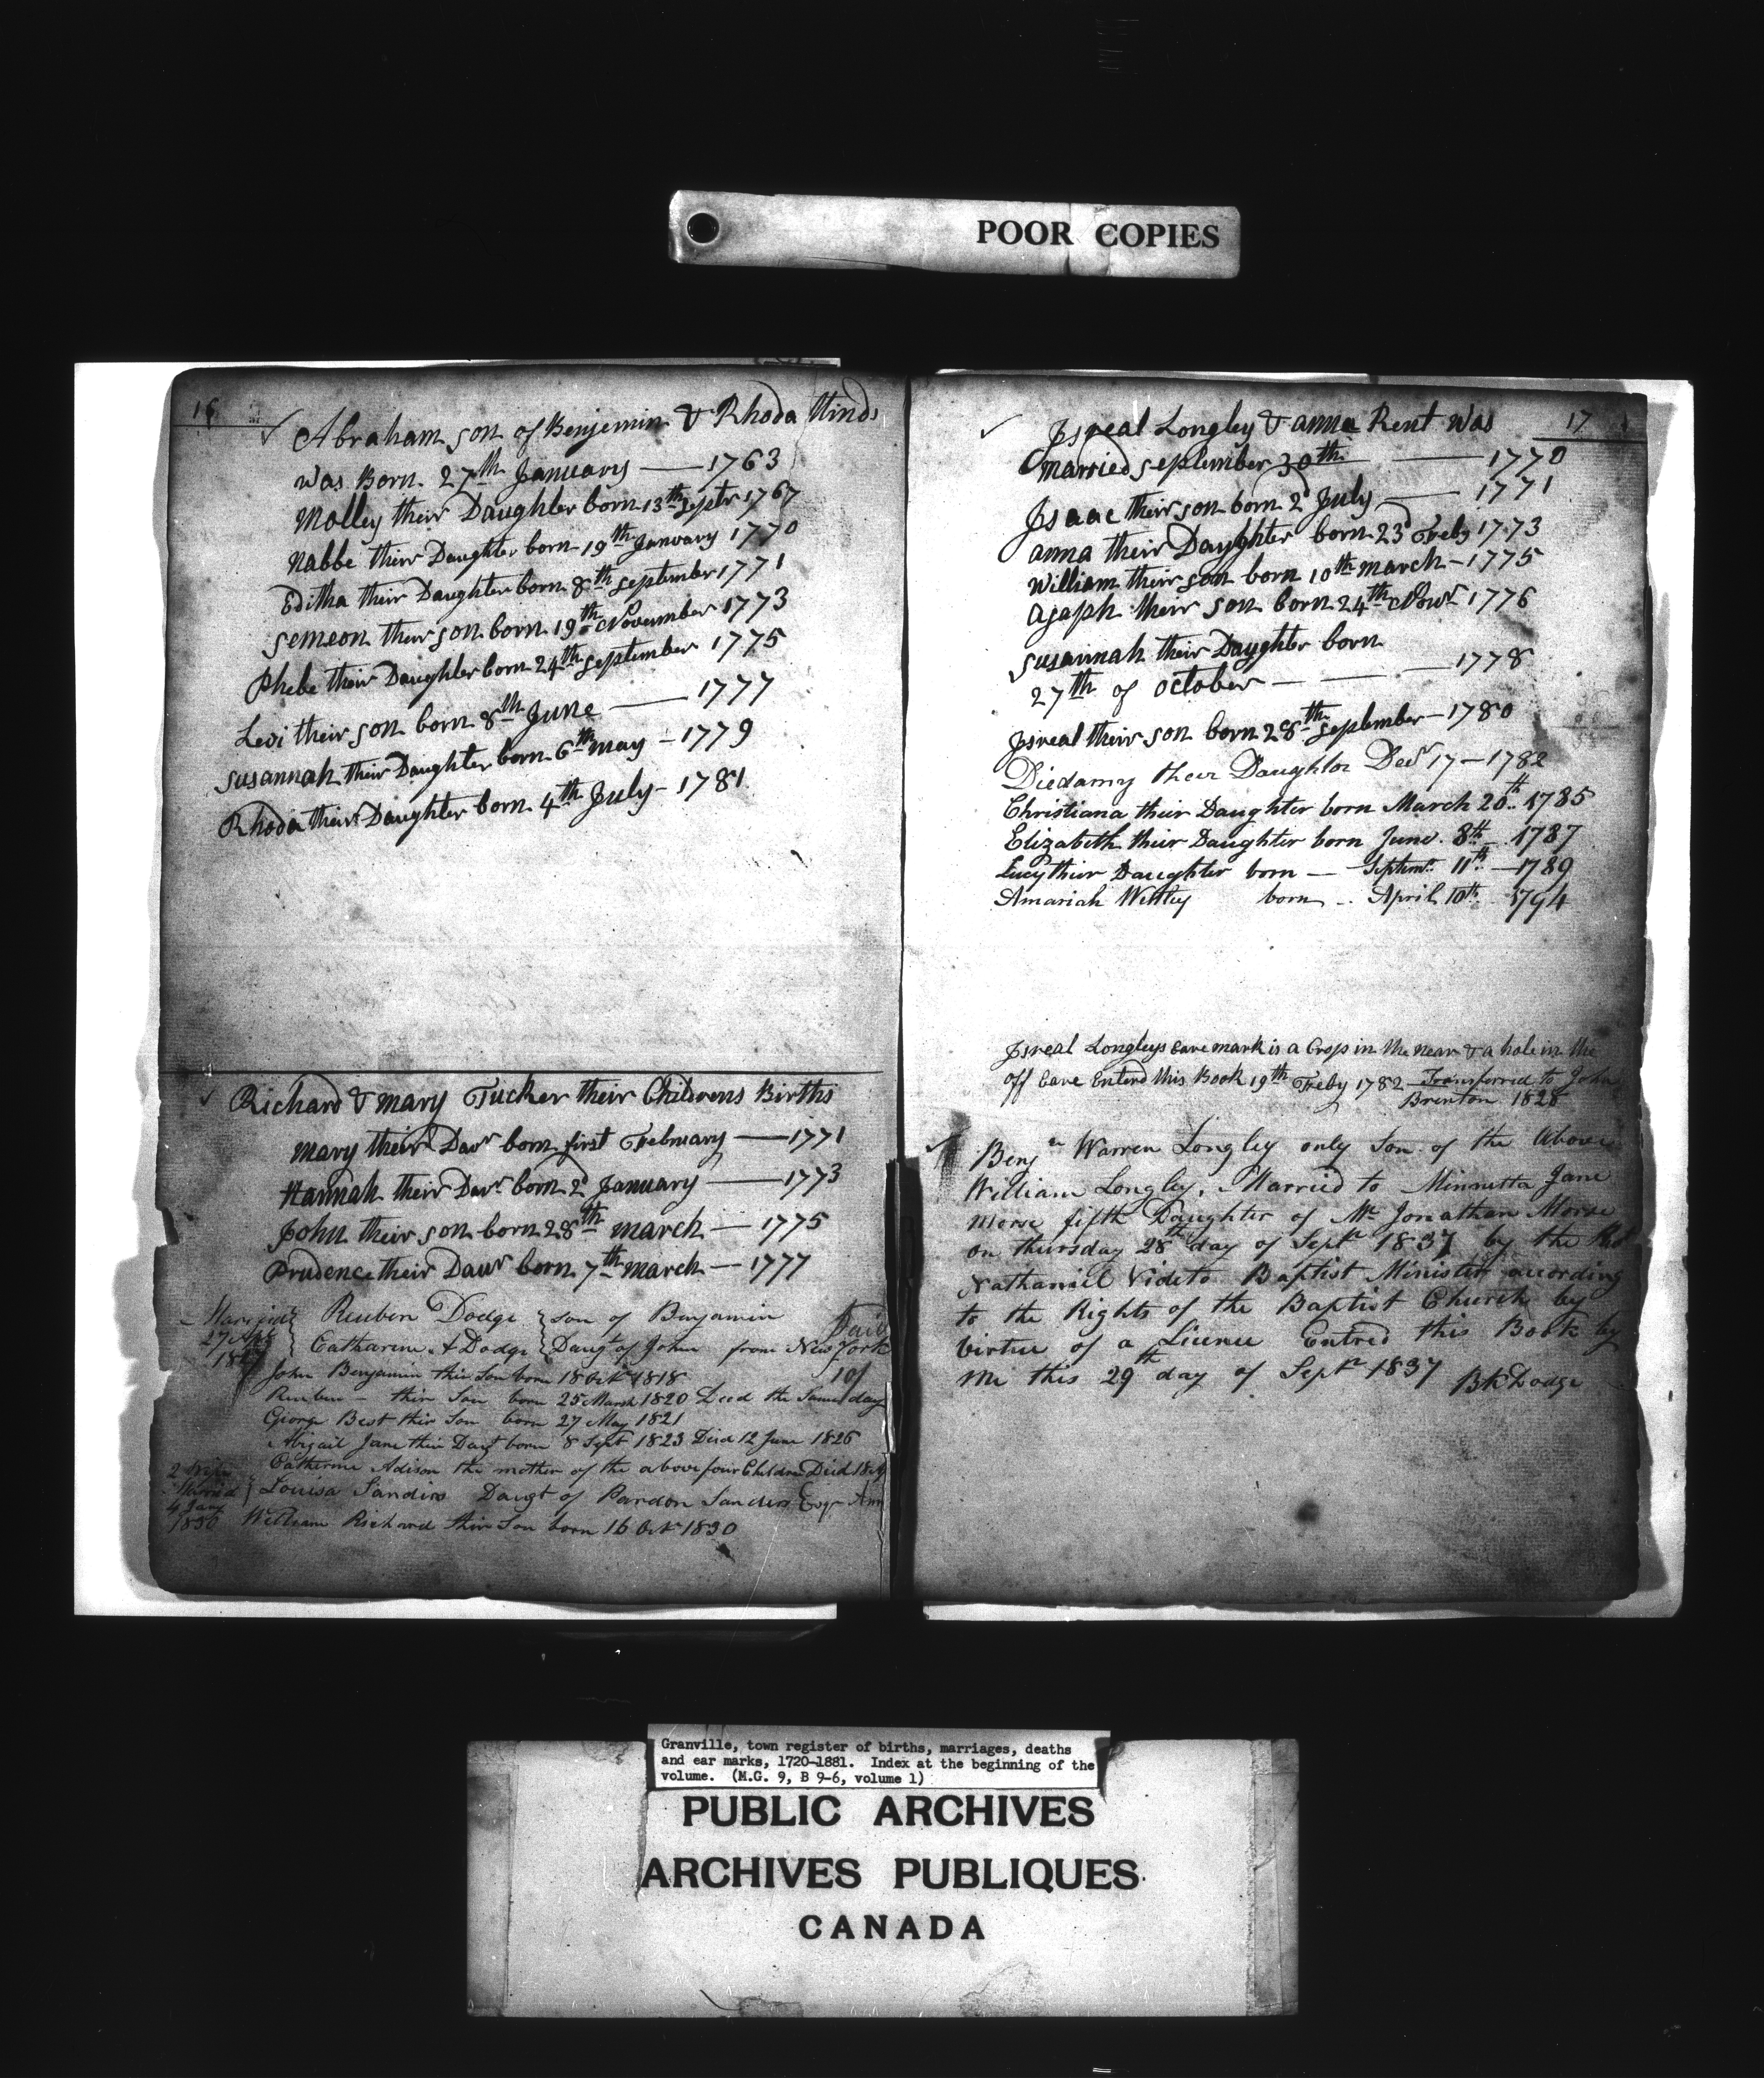 POOR COPIES
16
Abraham son of Benjemin & Rhoda Hinds
was Born 27th January — 1763
Molley their Daughter born 13th Septr 1767
Nabbe their Daughter born 19th January 1770
Editha their Daughter born 8th September 1771
Semeon their son born 19th November 1773
Phebe their Daughter born 24th September 1775
Levi their son born 8th June — 1777
Susannah their Daughter born 6th may — 1779
Rhoda their Daughter born 4th July — 1781
Richard & mary Tucker their Childrens Births
mary their Daur born first February — 1771
Hannah their Daur born 2d January — 1773
John their son born 28th march — 1775
Prudence their Daur born 7th march — 1777
Married Reuben Dodge son of Benjamin Paid
27 Catharine A Dodge Daugt of John from New York
John Benjamin thir Son born 18 Octr 1818 10/
Reuben thir Son born 25 March 1820 Died the Same day
George Best thir Son born 27 May 1821
Abigail Jane thir Daugt born 8 Sept 1823 Died 12 June 1826
2 Wife Catherine Adison the mother of the above four Children Died
Married Louisa Sanders Daugt of Pardon Sanders Esqr
4 Jany
1830 William Richard thir Son born 16 Octr 1830
17
Jsreal Longley & anna Kent was
married september 30th — 1770
Jsaac their son born 2d July — 1771
anna their Daughter born 23d Feby 1773
William their son born 10th march — 1775
Asaph their son born 24th Novr 1776
Susannah their Daughter born
27th of october — — 1778
Jsreal their son born 28th September — 1780
Diedamy their Daughter Decr 17 — 1782
Christiana their Daughter born March 20th 1785
Elizabeth their Daughter born June 8th 1787
Lucy thier Daughter born — Septemr 11th — 1789
Amariah Wesley born April 10th 1794
Jsreal Longleys eare mark is a Crop in the near & a hole in the
off Eare Enterd this Book 19th Feby 1782 Transferred to John
Brenton 1828
Benjn Warren Longley only Son of the Above
William Longley, Married to Minnetta Jane
Morse fifth Daughter of Mr Jonathan Morse
on thursday 28th day of Septr 1837 by the Red
Nathaniel Videto Baptist Minister according
to the Rights of the Baptist Church by
virtue of a Licence Entred this Book by
me this 29th day of Septr 1837 BK Dodge
Granville, town register of births, marriages, deaths
and ear marks, 1720-1881. Index at the beginning of the
volume. (M.G. 9, B 9-6, volume 1)
PUBLIC ARCHIVES
ARCHIVES PUBLIQUES
CANADA